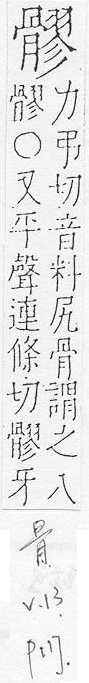 髎
力弔切音料尻骨謂之八
髎〇又平聲連條切髎牙
骨
v.13
p117.